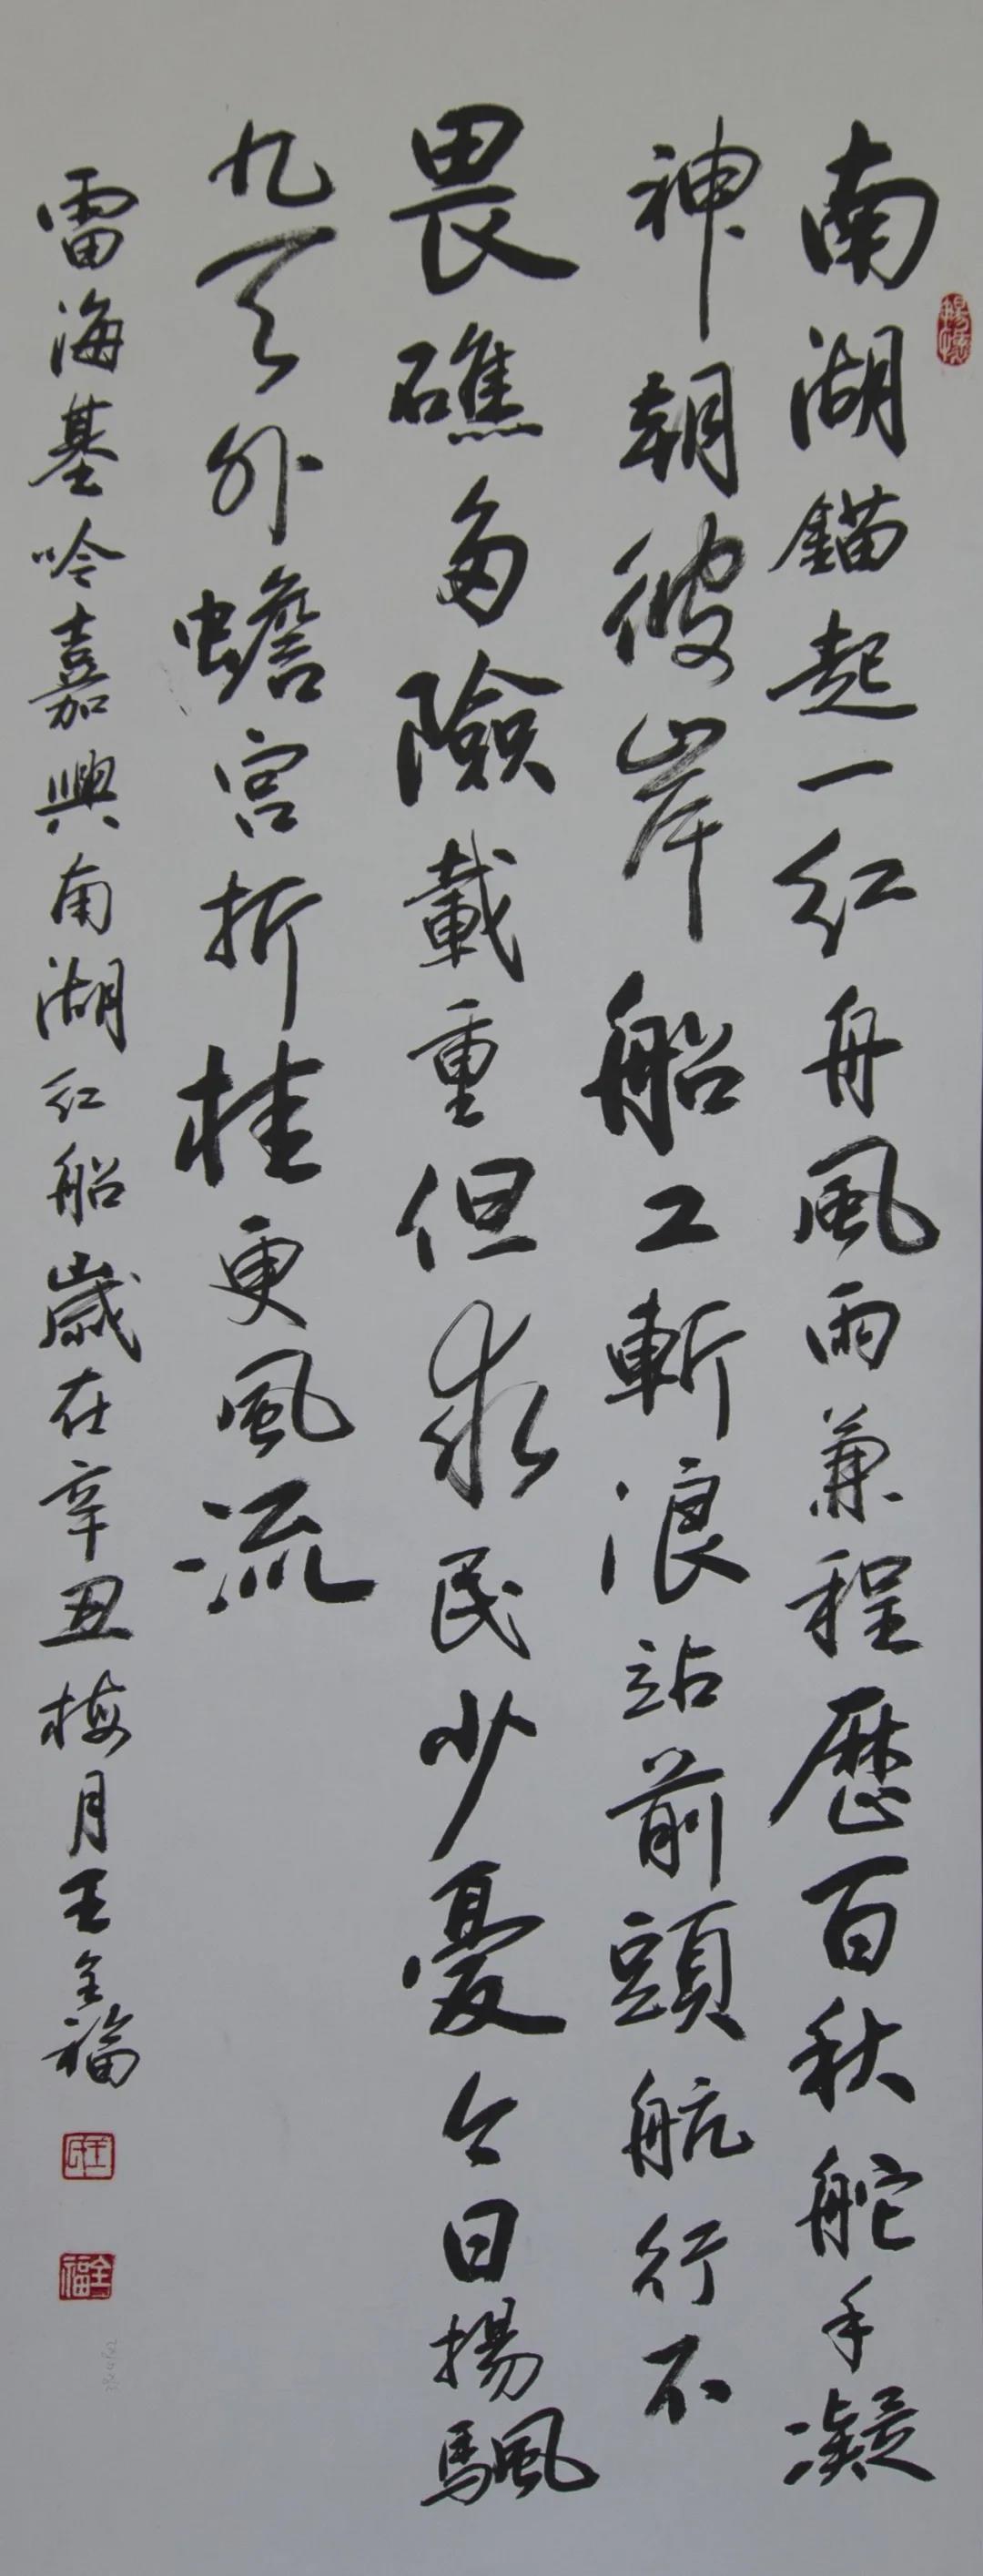 南湖錨起一红舟風雨兼程歷百秋舵手凝
神朝彼岸船工斬浪站前頭航行不
畏礁多險載重但求民少憂今日揚颿
九天外蟾宫折桂更風流
雷海基吟嘉興南湖红船歲在辛丑梅月王全福
王氏
全福